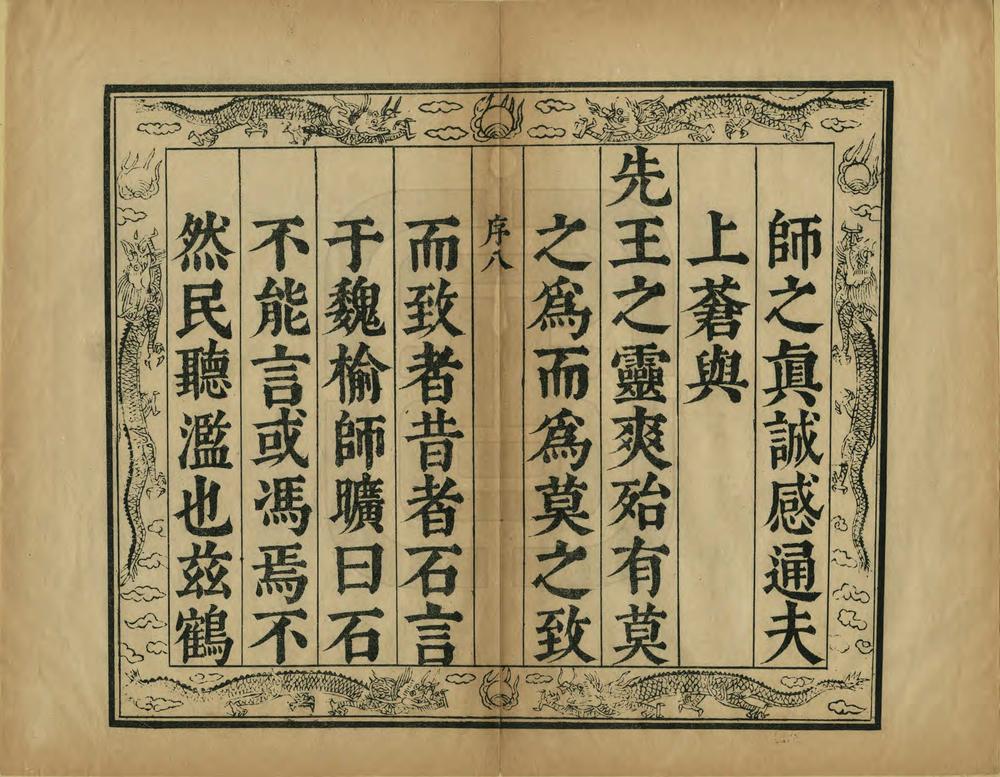 師之眞誠感通夫
上蒼與
先王之靈爽殆有莫
之爲而爲莫之致
序八
而致者昔者石言
于魏榆師曠曰石
不能言或馮焉不
然民聽濫也茲鶴